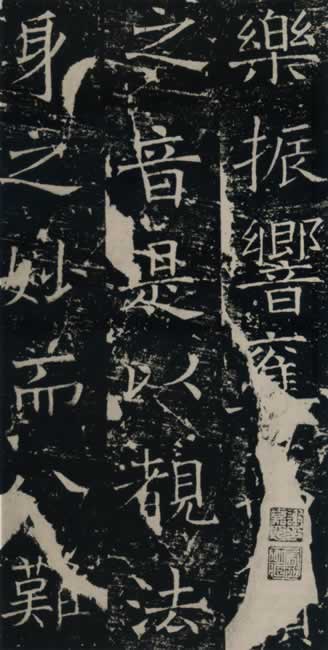 樂振響雍
之音是以覩法
身之妙而八難